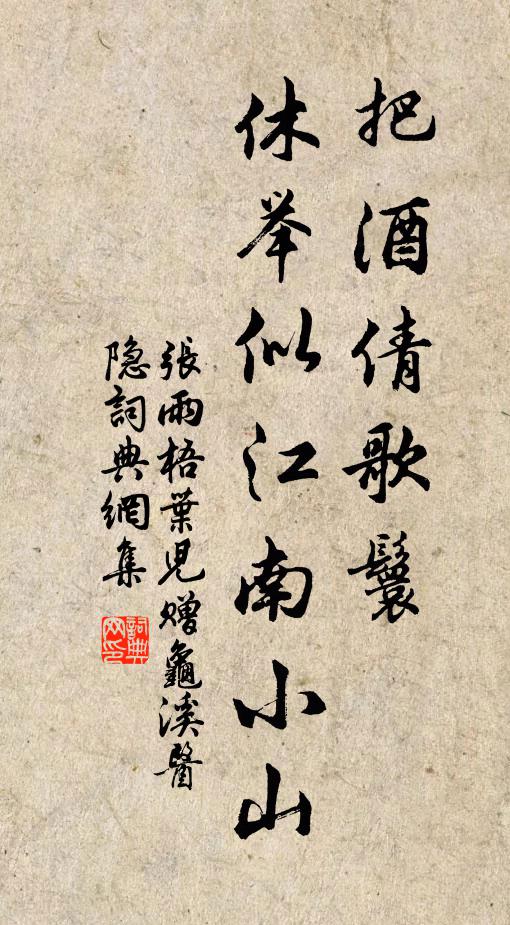 把酒倩歌鬟
休举似江南小山
張雨梧葉兒贈龜溪醫
隐詞典網集
詞典
网印